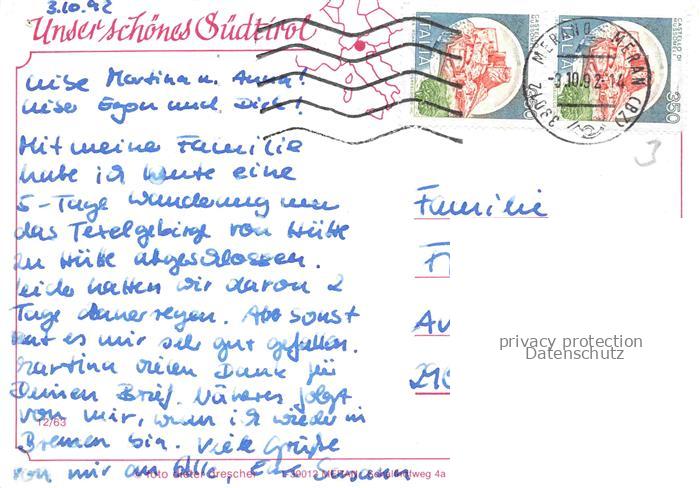 3.10.92
Unser schönes Südtirol
Liebe Martina u. Anna!
Lieber Egon und Dirk!
Mit meine Familie
habe ich heute eine
5-Tage Wanderung um
das Texelgebirge von Hütte
zu Hütte abgeschlossen.
Leider hatten wir davon 2
Tage dauerregen. Aber sonst
hat es mir sehr gut gefallen.
Martina vielen Dank für
Deinen Brief. Näheres folgt
von mir, wenn ich wieder in
12/63
Bremen bin. Viele Grüße
von mir an Alle, Eure
foto dieter drescher I-39012 MERAN 4a
CASTELLO DI
ITALIA
CASTELLO DI
ITALIA
350
MERANO - MERAN (BZ)
-3.10.92-14
39012
3
Familie
F
Au
privacy protection
Datenschutz